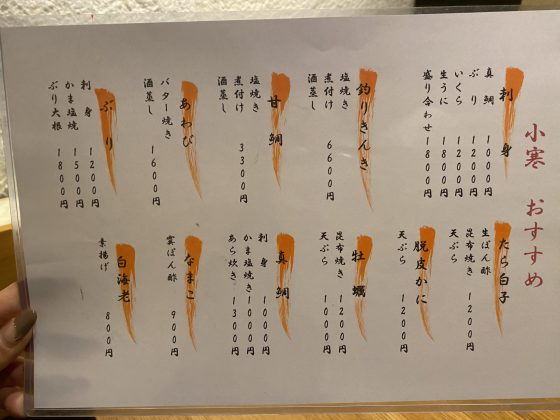 小寒 おすすめ
刺身
真鯛 1000円
ぶり 1200円
いくら 1200円
生うに 1800円
盛り合わせ 1800円
釣りきんき
塩焼き
煮付け 6600円
酒蒸し
甘鯛
塩焼き
煮付け 3300円
酒蒸し
あわび
バター焼き 1600円
酒蒸し
ぶり
刺身 1200円
かま塩焼 1500円
ぶり大根 1800円
たら白子
生ぽん酢
昆布焼き 1200円
天ぷら
脱皮かに
天ぷら 1200円
牡蠣
昆布焼き 1200円
天ぷら 1000円
真鯛
刺身 1000円
かま塩焼き 1000円
あら炊き 1300円
なまこ
霙ぽん酢 900円
白海老
素揚げ 800円